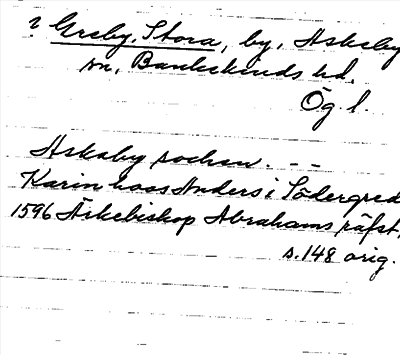 ? Greby, Stora, by, Askeby
sn, Bankekinds hd.
Ög l.
Askaby sochen. --
Karin hoos Anders i Södergred
1596 Ärkebiskop Abrahams räfst,
s. 148 orig.